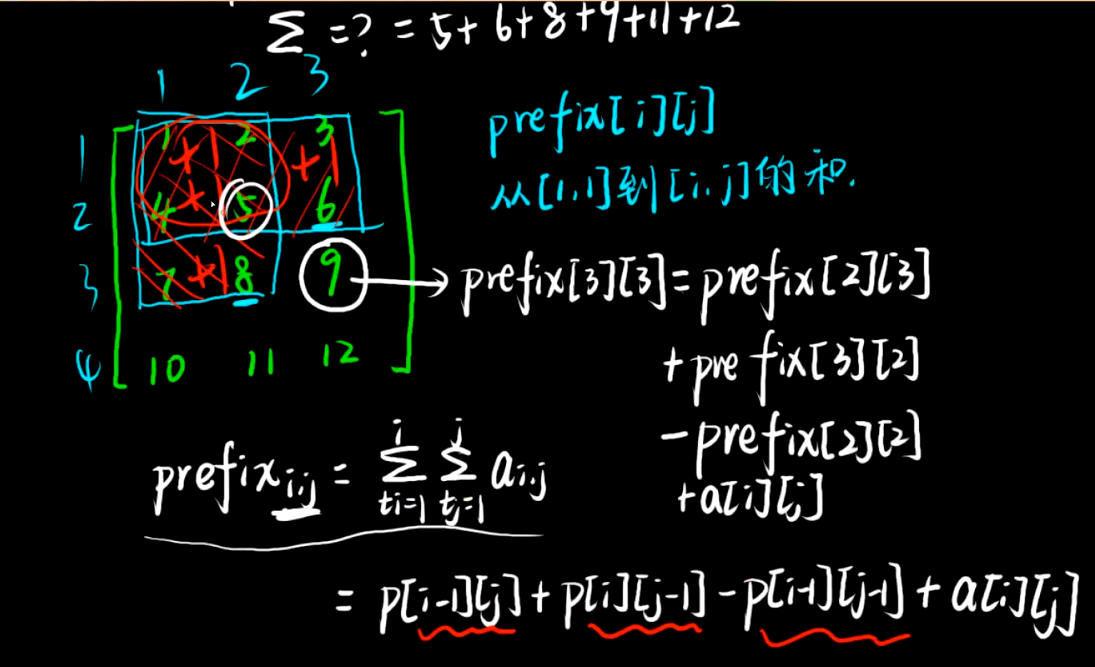 Σ =? = 5+6+8+9+11+12
1 2 3
1 1 2 3
+1 +1
2 4 5 6
+1
3 7 8 9
+1
4 10 11 12
prefix[i][j]
从[1,1]到[i,j]的和.
prefix[3][3]=prefix[2][3]
+prefix[3][2]
-prefix[2][2]
+a[i][j]
prefix i,j = i Σ ti=1 j Σ tj=1 a i,j
= p[i-1][j]+p[i][j-1]-p[i-1][j-1]+a[i][j]